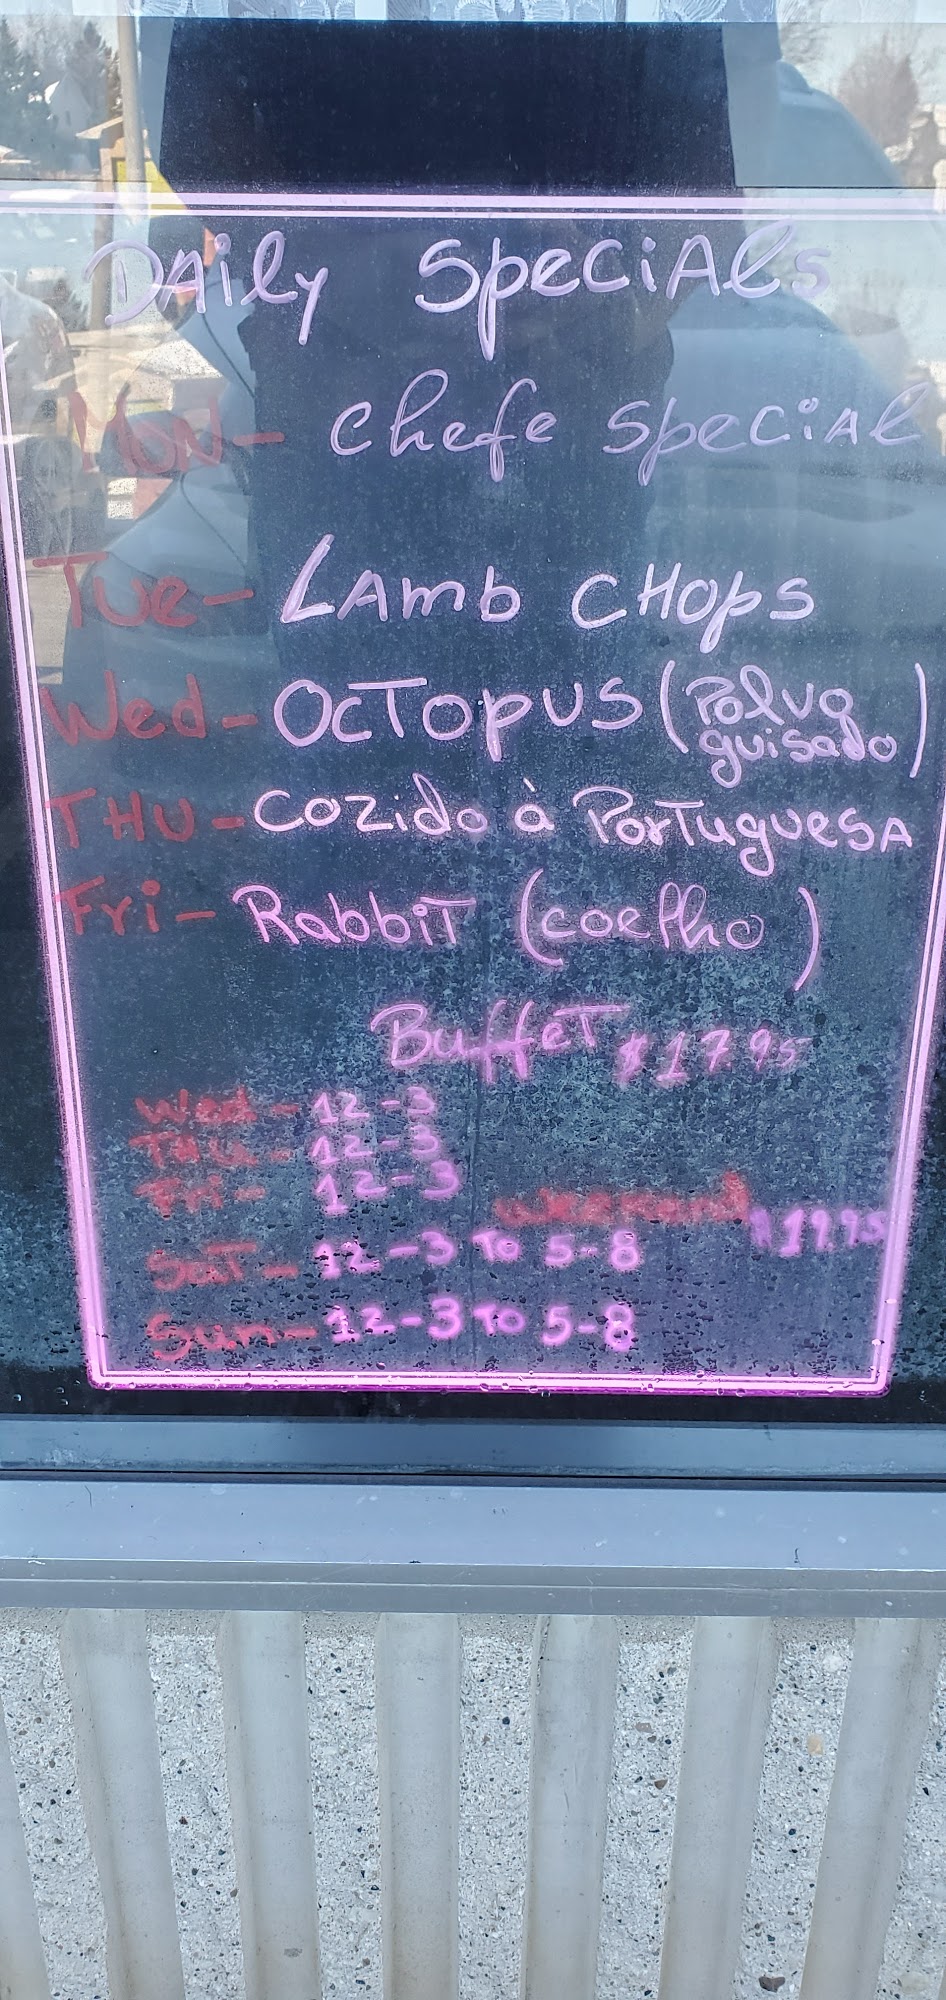 DAily SpeciAls
Mon- chefe special
Tue- LAmb CHOps
Wed- OcTopus (Polvo guisado)
THU- Cozido à PorTuguesA
Fri- RabbiT (coelho)
BuffeT $17.95
Wed- 12-3
THU- 12-3
Fri- 12-3
weekend $19.95
SaT- 12-3 To 5-8
Sun- 12-3 To 5-8